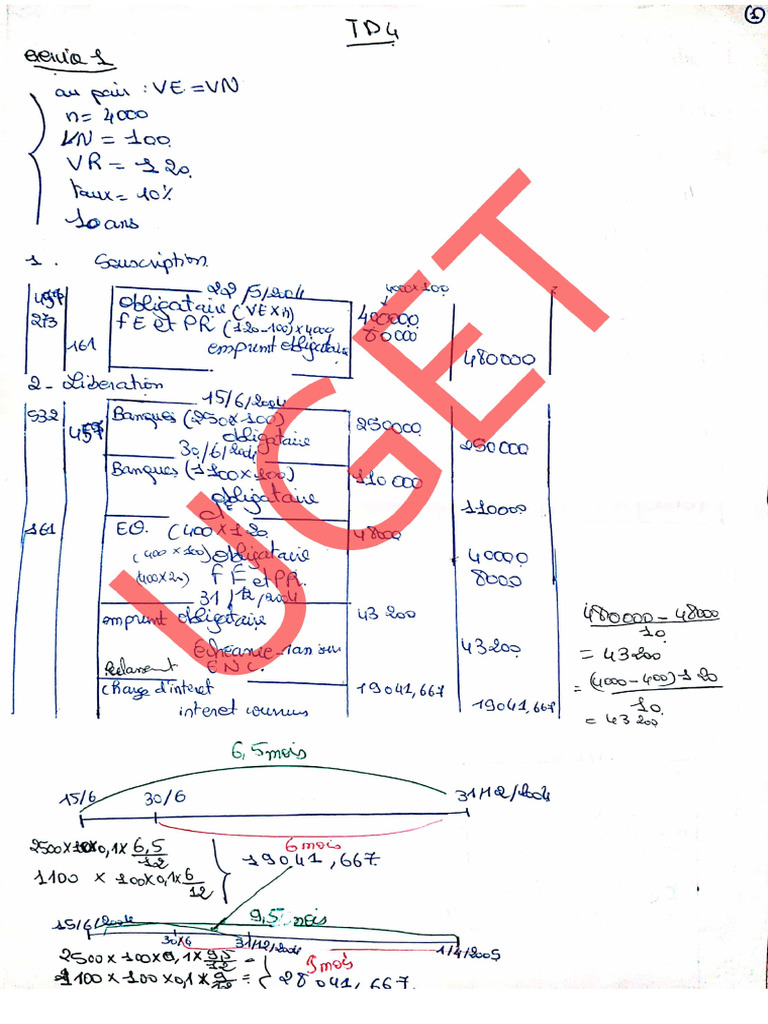 1
TD4
Serie 1
au pair : VE = VN
n = 4000
VN = 100
VR = 120
taux = 10%
10 ans
1. Souscription
22/5/2004
4000 x 100
457 obligataire (VE x n) 400000
273 fE et PR (120-100) x 4000 80000
161 emprunt obligataire 480000
2 - Liberation
15/6/2004
532 Banques (2500 x 100) 250000
457 obligataire 250000
30/6/2004
Banques (1100 x 100) 110000
obligataire 110000
d°
161 EO. (400 x 120 48000
(400 x 100) obligataire 40000
(400 x 20) fE et PR. 8000
31/12/2004
emprunt obligataire 43200
Echéance - 1an sur 43200
Reclassement E N C.
charge d'interet 19041,667
interet courus 19041,667
480000 - 48000
10
= 43200
= (4000-400) x 120
10
= 43200
6,5 mois
15/6 30/6 31/12/2004
6 mois
2500 x 100 x 0,1 x 6,5/12
19041,667
1100 x 100 x 0,1 x 6/12
9,5 mois
15/6/2004 30/6 31/12/2004 1/4/2005
9 mois
2500 x 100 x 0,1 x 9,5/12 =
1100 x 100 x 0,1 x 9/12 = 28041,667
UGET